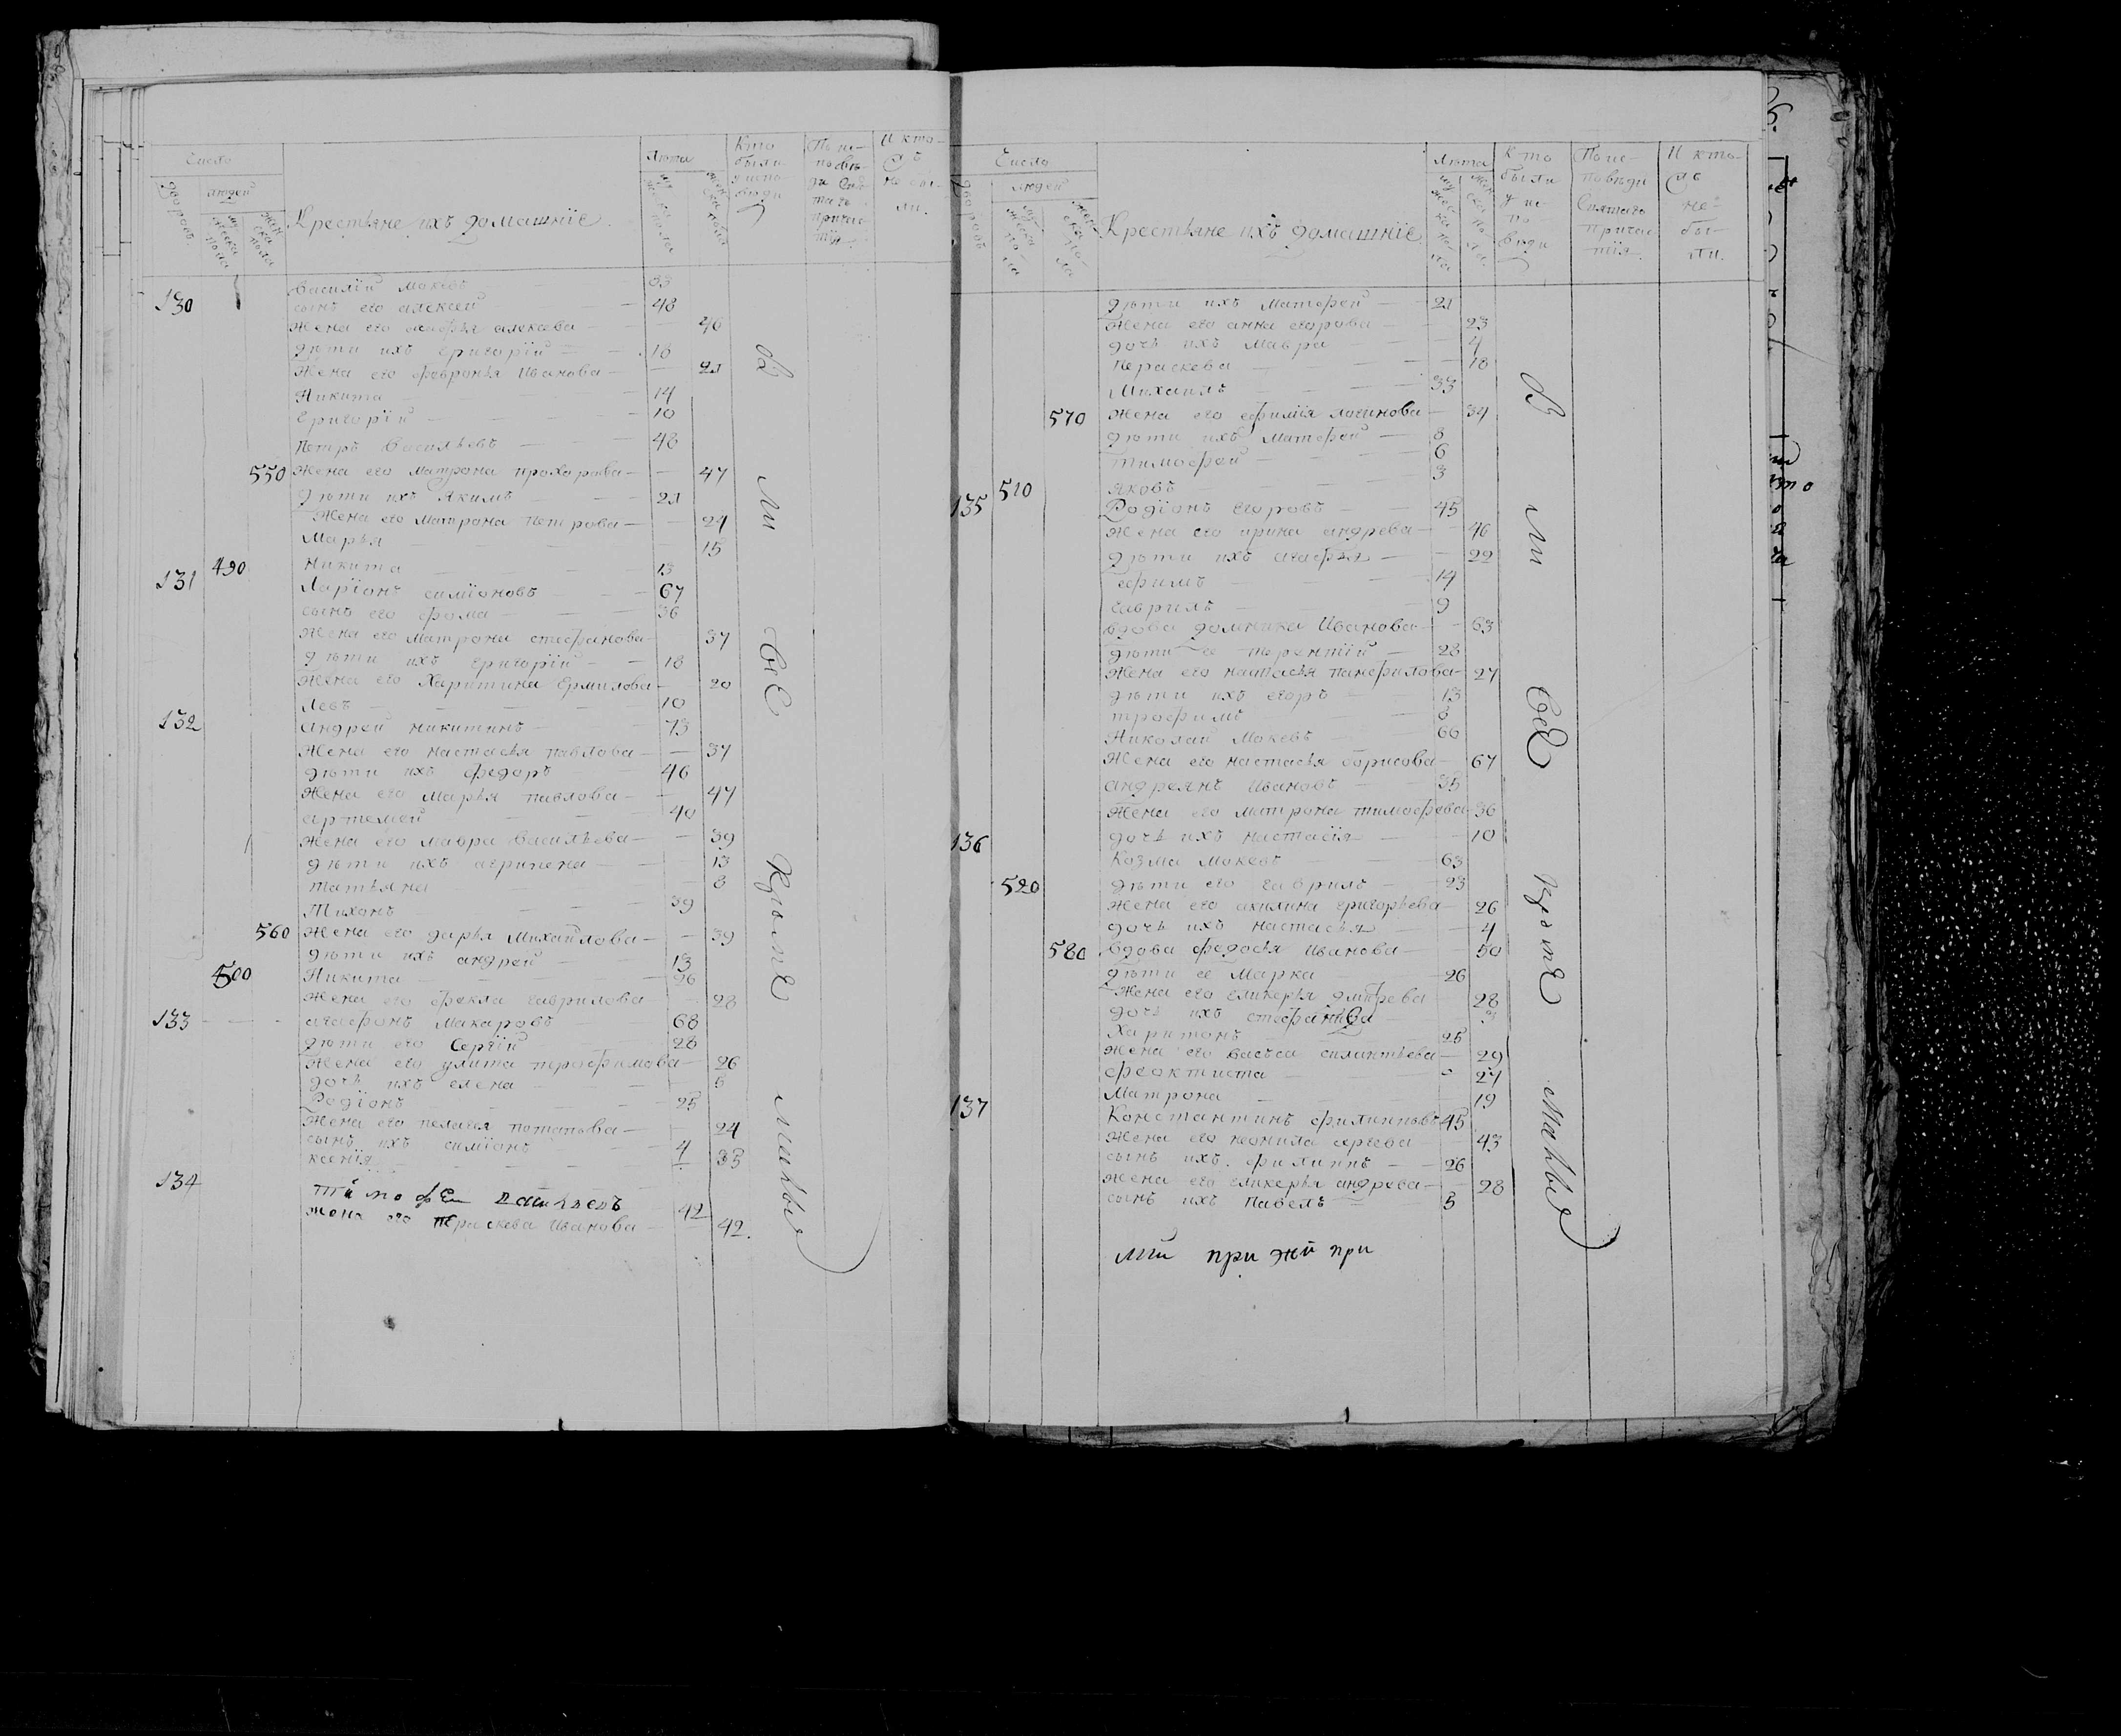 Число
дворовъ
людей
мужеска пола
женска пола
Крестьяне ихъ домашнїе
Лѣта
мужеска пола
женска пола
Кто были у исповеди
По исповѣди Святаго причастїя
И кто я не были.
130 Василїй Мокевъ 83
сынъ его алексей 48
Жена его алексева 46
дѣти ихъ григорїй 18
Жена его февронья Иванова 21
Никита 14
Григорїй 10
Петръ Васильевъ 48
550 Жена его Матрона прохорова 47
дѣти ихъ Якимъ 21
Жена его Матрона Петрова 24
Марья 15
490 Никита 13
131 Ларїонъ симїоновъ 67
сынъ его фома 36
Жена его Матрона стефанова 37
дѣти ихъ григорїй 18
Жена его Харитина Ермилова 20
Левъ 10
132 Андрей никитинъ 73
Жена его настасья павлова 37
дѣти ихъ федоръ 46
Жена его Марья павлова 47
артемей 40
Жена его мавра васильева 39
дѣти ихъ агрипена 13
татьяна 8
Тихонъ 39
560 Жена его дарья Михайлова 39
дѣти ихъ андрей 13
500 Никита 26
Жена его фекла гаврилова 28
133 агафонъ Макаровъ 68
дѣти его Сергїй 28
Жена его улита трофимова 26
дочь ихъ елена 5
Родїонъ 25
Жена его пелагея потапова 24
сынъ ихъ симїонъ 4
ксенїя 35
134 тимофей 42
жена его пераскева Иванова 42.
Были все кромѣ малыя
Число
дворовъ
людей
мужеска пола
женска пола
Крестьяне ихъ домашнїе
Лѣта
мужеска пола
женска пола
Кто были у исповеди
По исповѣди Святаго причастїя.
И кто я не были.
дѣти ихъ Матфей 21
Жена его анна егорова 23
дочь ихъ Мавра 4
Пераскева 18
Михаилъ 33
570 Жена его ефимїя логинова 34
дѣти ихъ Матфей 8
тимофей 6
510 яковъ 3
135 Родїонъ Егоровъ 45
Жена его ирина андрева 46
дѣти ихъ агафья 22
ефимъ 14
гаврилъ 9
вдова домника Иванова 63
дѣти ее терентїй 28
Жена его настасья панфилова 27
дѣти ихъ егоръ 13
трофимъ 8
Николай Мокевъ 66
Жена его настасья борисова 67
андреянъ Ивановъ 35
Жена его матрона тимофева 36
136 дочь ихъ настасїя 10
Козма Мокевъ 63
520 дѣти его гаврилъ 23
Жена его акилина григорьева 26
дочь ихъ настасья 4
580 вдова федосья Иванова 50
дѣти ее Марка 26
Жена его гликерья дмитрева 28
дочь ихъ стефанида 3
Харитонъ 25
Жена его васъса силантьева 29
феоктиста 27
Матрона 19
137 Константинъ филипповъ 45
Жена его неонила сергева 43
сынъ ихъ филиппъ 26
Жена его гликерья андрева 28
сынъ ихъ Павелъ 5
при жи при
Были все кромѣ малыя